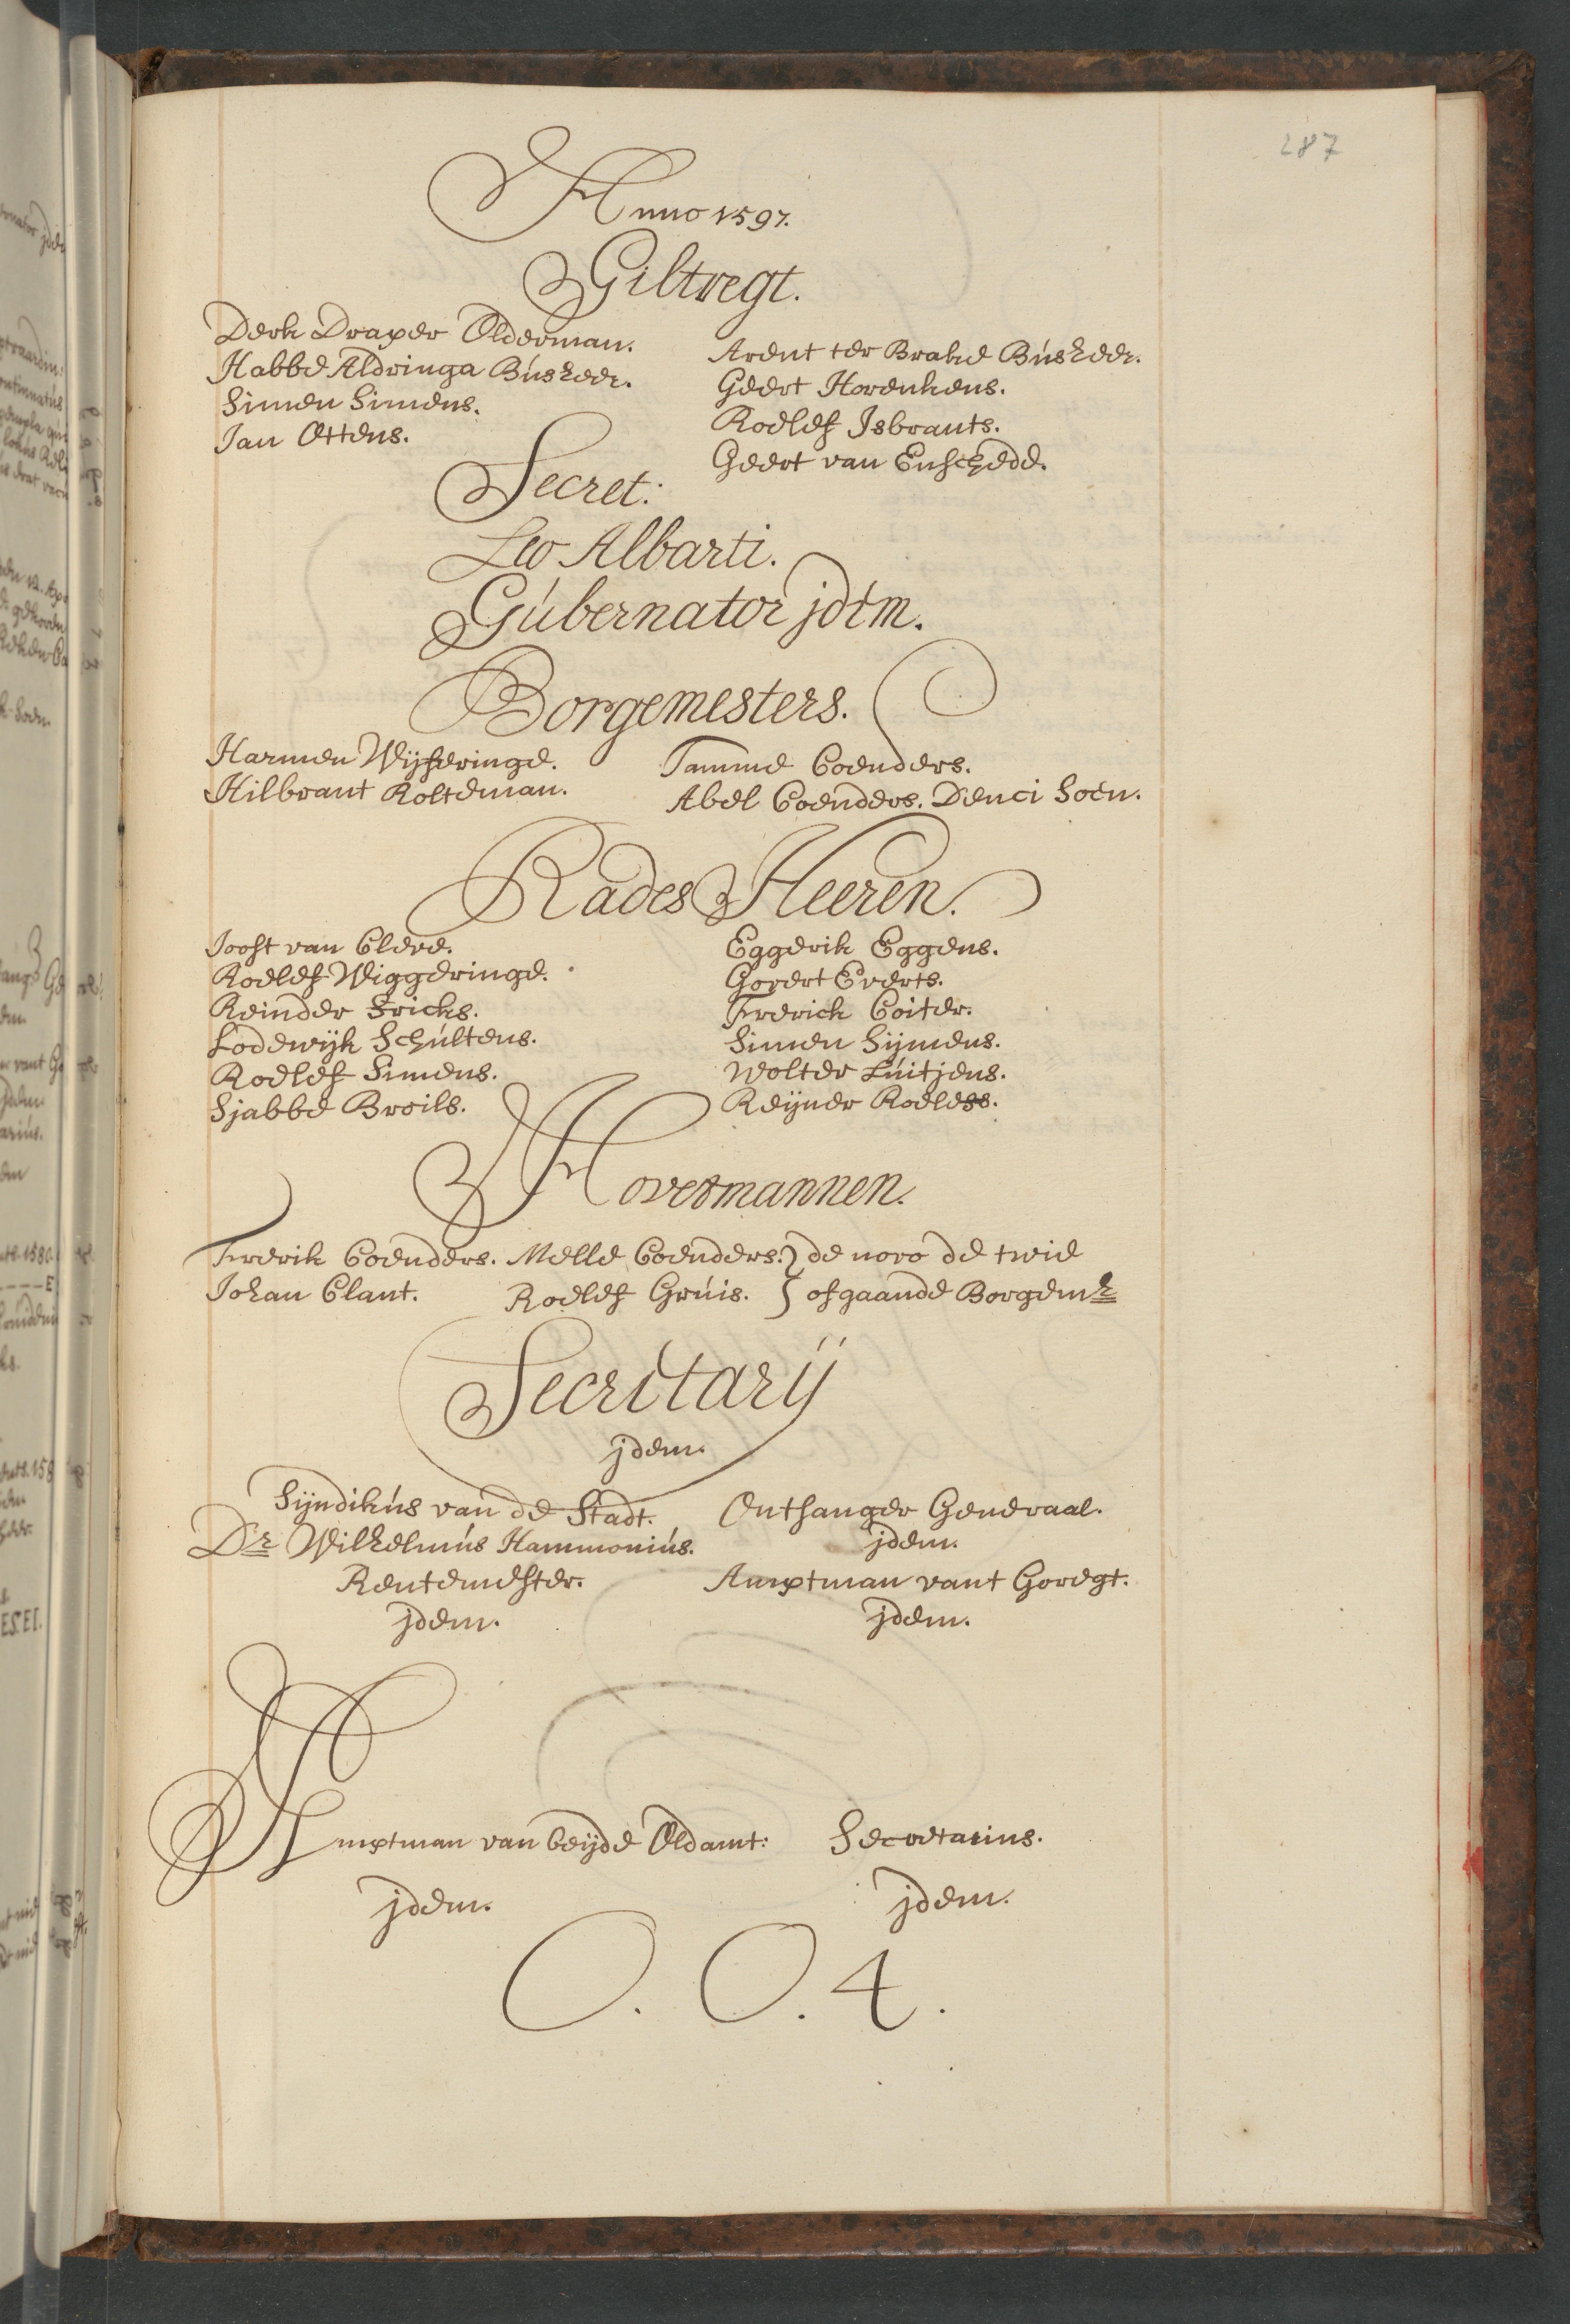 287
Anno 1597.
Giltregt.
Derk Draper Olderman.
Habbe Aldringa Búsheer.
Simen Simens.
Jan Ottens.
Arent ter Brake Búsheer.
Geert Horenkens.
Roelef Isbrants.
Geert van Enschede.
Secret:
Leo Albarti.
Gúbernator jdem.
Borgemesters.
Harmen Wijfferinge.
Hilbrant Rolteman.
Tamme Coenders.
Abel Coenders. Denci Soen.
Rades Heeren.
Joost van Cleve.
Roelef Wiggeringe.
Reinder Fricks.
Lodewijk Schúltens.
Roelef Simens.
Sjabbe Broils.
Eggerik Eggens.
Govert Everts.
Frerich Coiter.
Simen Sijmens.
Wolter Lúitjens.
Reijner Roeless.
Hovetmannen.
Frerik Coenders. Melle Coenders. } de novo de twie
Johan Clant. Roelef Grúis. } ofgaande Borgemr
Secretarij
jdem.
Sijndikús van de Stadt.
Dr Wilhelmús Hammoniús.
Rentemester.
jdem.
Ontfanger Generaal.
jdem.
Amptman vant Goregt.
jdem.
Amptman van beijde Oldamt: Secretarius.
jdem. jdem.
O. O. 4.